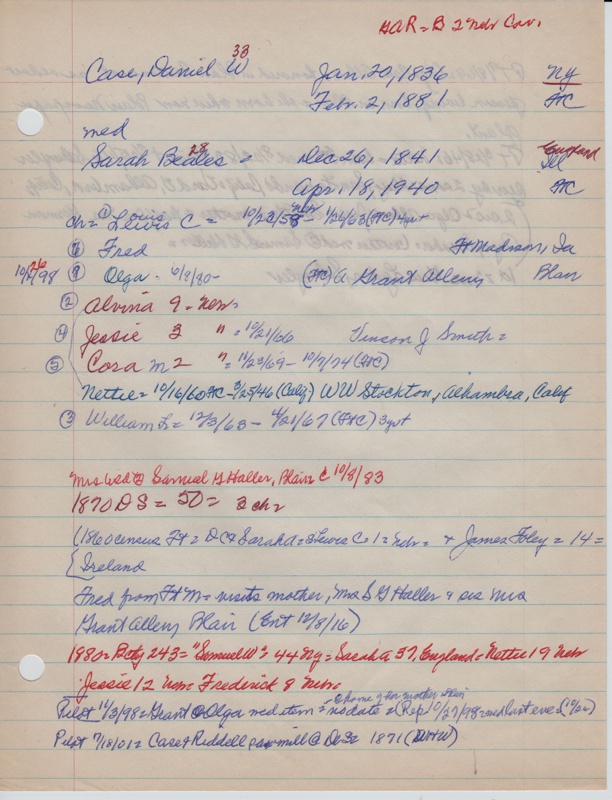 GAR = B 2 Nebr Cav.
33
Case, Daniel W Jan. 20, 1836 NY
Febr. 2, 1881 FtC
med
28 England
Sarah Beales = Dec 26, 1841 Ill
Apr. 18, 1940 FtC
ch = ① Louis Lewis C = 10/22/58 Nebr - 1/26/63 (FtC) 4 yr +
⑦ Fred Ft Madison, Ia
10/26/98 ⑧ Olga - 6/8/80- (FtC) A Grant Allen Blair
② Alvina 9 - Nebr
④ Jessie 3 " = 10/21/66 Vinson J Smith =
⑤ Cora M 2 " = 11/23/69 - 10/7/74 (FtC)
Nettie = 10/16/60 FtC - 3/25/46 (Calif) WW Stockton, Alhambra, Calif
③ William L = 12/3/63 - 4/21/67 (FtC) 3 yr +
Mrs wed @ Samuel G Haller, Blair C 10/8/83
1870 DS = 50 = 3 ch =
(1860 census Ft = DC & Sarah A = & Lewis C 1 = Nebr = & James Foley = 14 =
Ireland
Fred from Ft M = visits mother, Mrs S G Haller & sis Mrs
Grant Allen, Blair (Ent 12/8/16)
1880 = Pctg 243 = "Samuel W": 44 NY = Sarah A 37, England = Nettie 19 Nebr
Jessie 12 Nebr = Frederick 8 Nebr
@ home of her mother Blair
Pilot 11/3/98 = Grant & Olga wed item = no date = (Rep 10/27/98 = wed last eve) (10/26)
Pilot 7/18/01 = Case & Riddell sawmill @ DeS = 1871 (WHW)